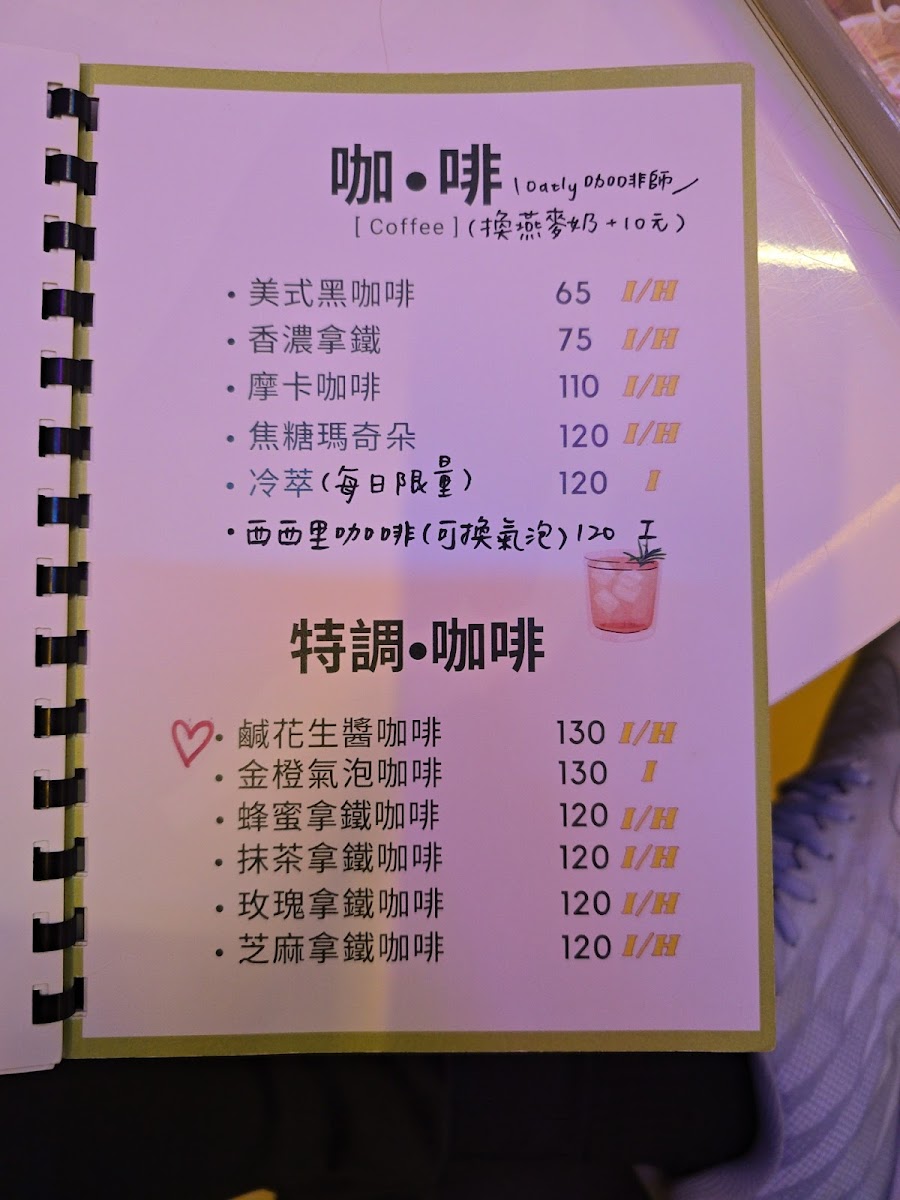 咖•啡 \Oatly咖啡師/
[ Coffee ] (換燕麥奶+10元)
• 美式黑咖啡 65 I/H
• 香濃拿鐵 75 I/H
• 摩卡咖啡 110 I/H
• 焦糖瑪奇朵 120 I/H
• 冷萃(每日限量) 120 I
• 西西里咖啡(可換氣泡) 120 I
特調•咖啡
• 鹹花生醬咖啡 130 I/H
• 金橙氣泡咖啡 130 I
• 蜂蜜拿鐵咖啡 120 I/H
• 抹茶拿鐵咖啡 120 I/H
• 玫瑰拿鐵咖啡 120 I/H
• 芝麻拿鐵咖啡 120 I/H